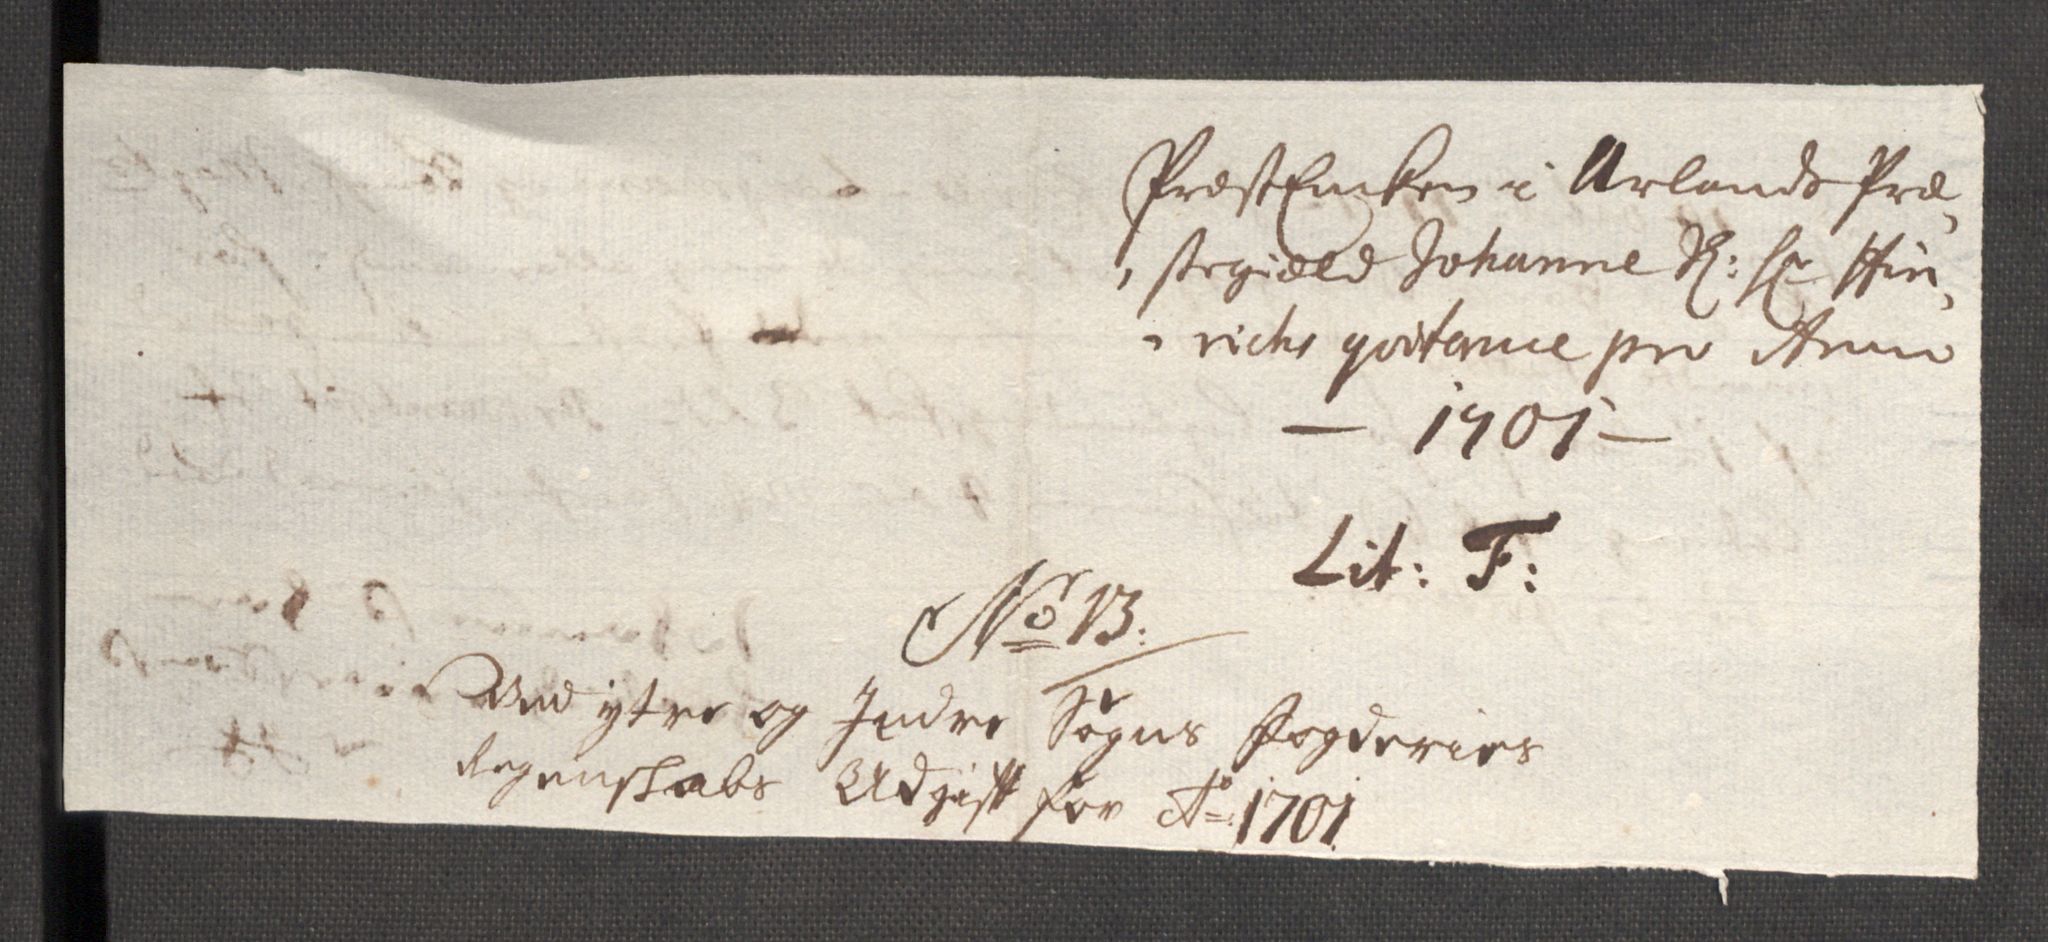 PræstEncken i Urlands Præ,
, stegield Johanne H: Sr Hin,
, richs qvitance pro Anno
— 1701 —
Lit: F:
No 13:
Ved ytre og Indre Sogns fogderies
Regenskabs Udgift for Ao: 1701